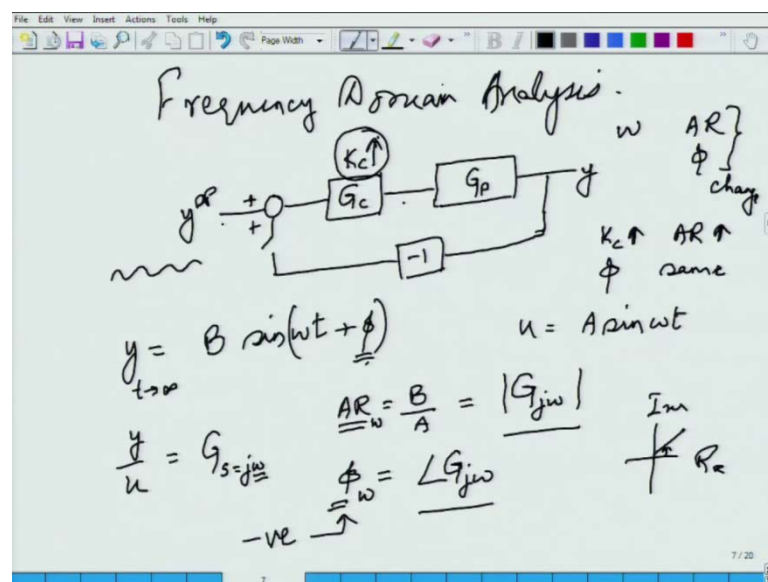 File Edit View Insert Actions Tools Help
Page Width
B I
Frequency Domain Analysis.
ω AR
φ
change
Kc↑
Gc
Gp
y
y^sp
+
+
-1
Kc↑ AR↑
φ same
y = B sin(ωt + φ)
t→∞
u = A sin ωt
AR_ω = B/A = |G_jω|
y/u = G_s=jω
φ_ω = ∠G_jω
-ve
Im
Re
7 / 20
7